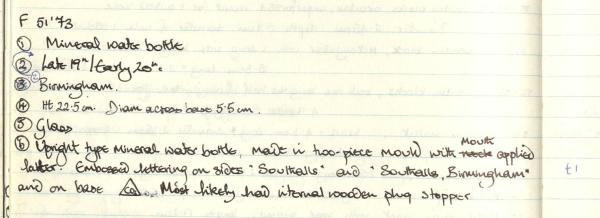 F 51'73
① Mineral water bottle
② Late 19th/Early 20th.
③ Birmingham.
④ Ht 22.5cm. Diam across base 5.5cm.
⑤ Glass
⑥ Upright type mineral water bottle, made in two-piece mould with Mouth applied
latter. Embossed lettering on sides "Southalls" and "Southalls, Birmingham"
and on base. Most likely had internal wooden plug stopper